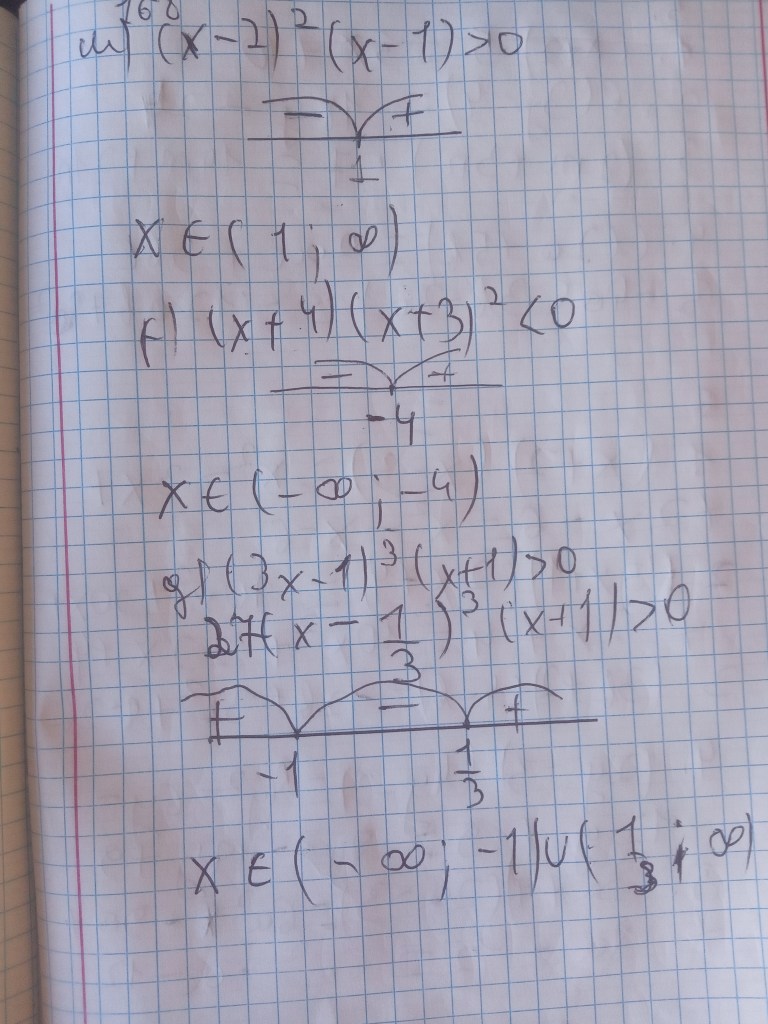 168
m) (x-2)² (x-1)>0
- +
1
x ∈ ( 1 ; ∞)
f) (x+4) (x+3)² <0
- +
-4
x ∈ (-∞ ; -4)
g) (3x-1)³ (x+1)>0
27(x - 1/3)³ (x+1)>0
+ - +
-1 1/3
x ∈ (-∞; -1)∪(1/3; ∞)